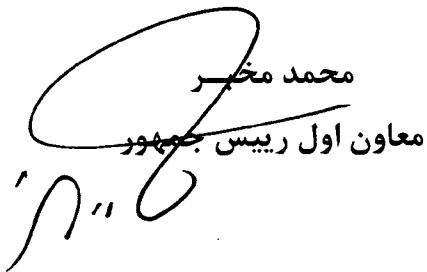 محمد مخبر
معاون اول رییس جمهور